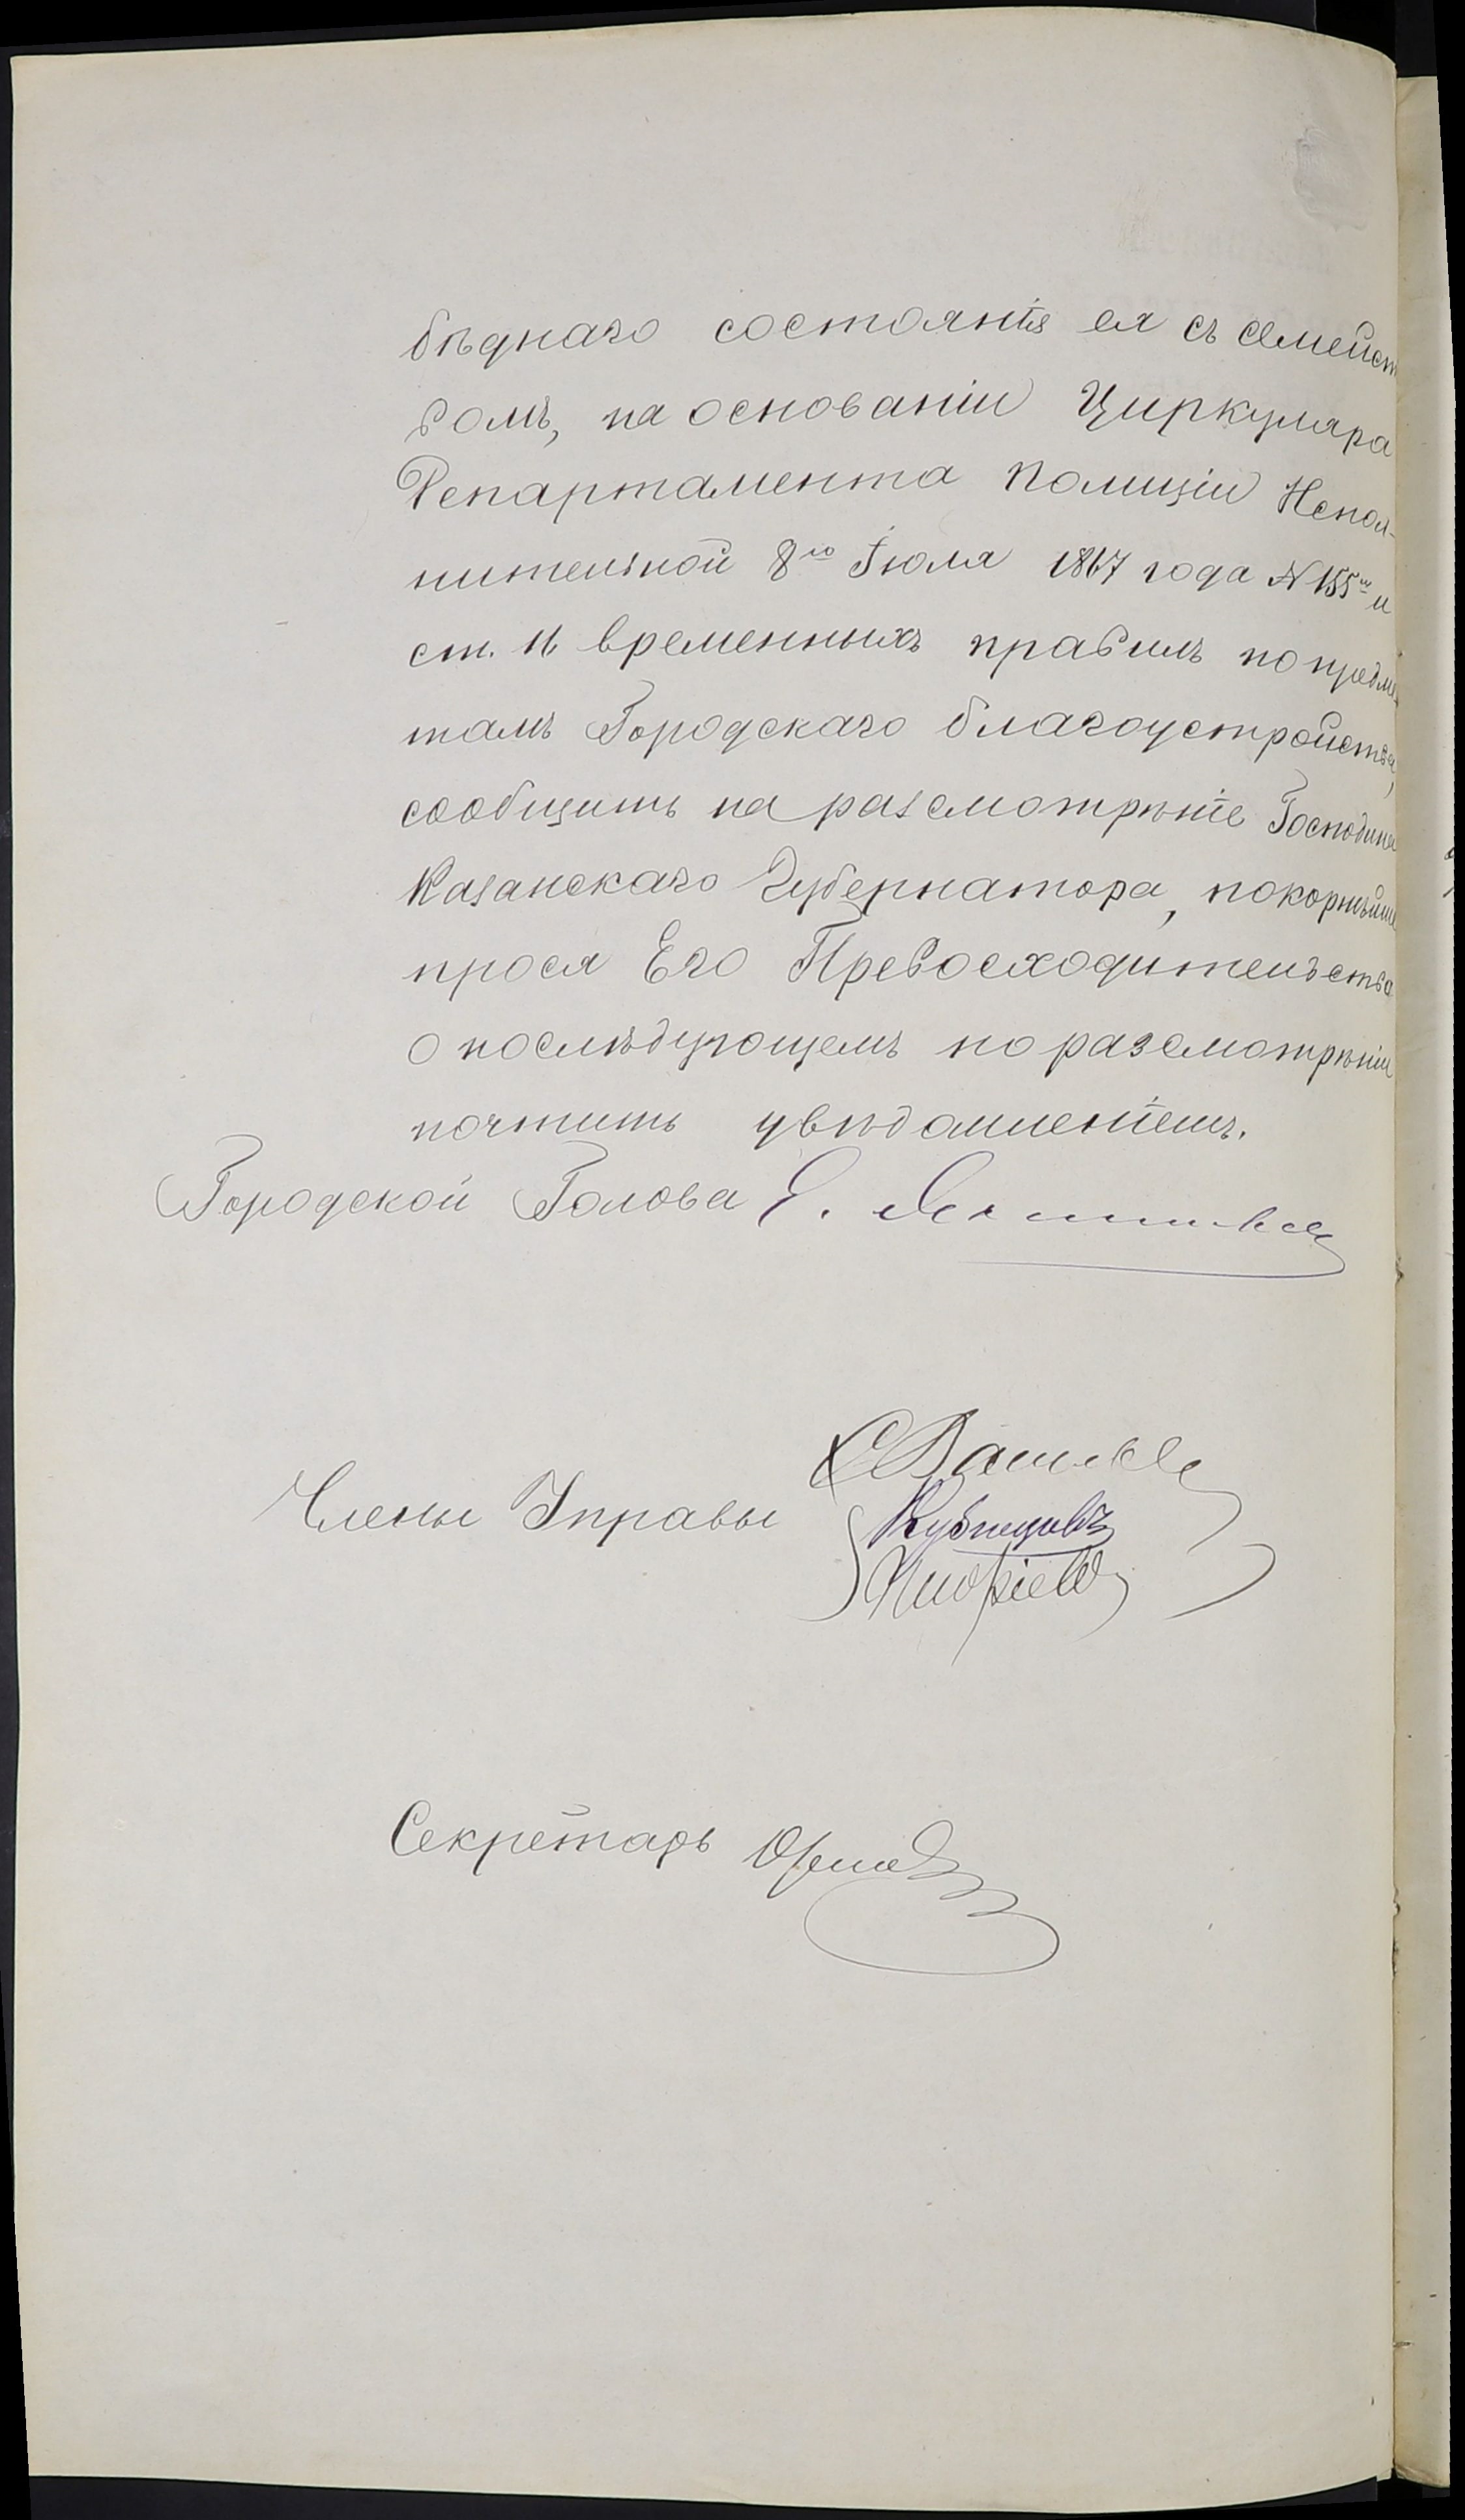 бѣднаго состоянія ея съ семейст
вомъ, на основаніи Циркуляра
Департамента Полиціи Испол-
нительной 8го Іюля 1867 года № 155м и
ст. 11 временныхъ правилъ по предме
тамъ Городскаго благоустройства,
сообщить на разсмотрѣніе Господина
Казанскаго Губернатора, покорнѣйше
прося Его Превосходительства
о послѣдующемъ по разсмотрѣніи
почтить увѣдомленіемъ.
Городской Голова
Члены Управы
Кубнецовъ
Секретарь